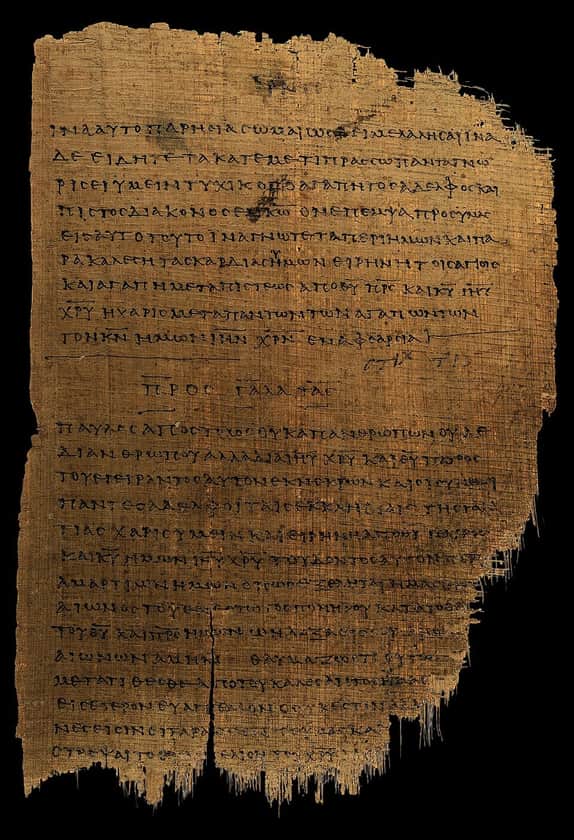 ΙΝΑ ΑΥΤΟ ΠΑΡΗϹΙΑϹΩΜΑΙ ΩϹ ΔΕΙ ΜΕ ΛΑΛΗϹΑΙ ΙΝΑ
ΔΕ ΕΙΔΗΤΕ ΤΑ ΚΑΤ ΕΜΕ ΤΙ ΠΡΑϹϹΩ ΠΑΝΤΑ ΓΝΩ
ΡΙϹΕΙ ΥΜΕΙΝ ΤΥΧΙΚΟϹ Ο ΑΓΑΠΗΤΟϹ ΑΔΕΛΦΟϹ ΚΑΙ
ΠΙϹΤΟϹ ΔΙΑΚΟΝΟϹ ΕΝ Κ̅Ω̅ ΟΝ ΕΠΕΜΨΑ ΠΡΟϹ ΥΜΑϹ
ΕΙϹ ΑΥΤΟ ΤΟΥΤΟ ΙΝΑ ΓΝΩΤΕ ΤΑ ΠΕΡΙ ΗΜΩΝ ΚΑΙ ΠΑ
ΡΑΚΑΛΕϹΗ ΤΑϹ ΚΑΡΔΙΑϹ ΥΜΩΝ ΕΙΡΗΝΗ ΤΟΙϹ ΑΓΙΟΙϹ
ΚΑΙ ΑΓΑΠΗ ΜΕΤΑ ΠΙϹΤΕΩϹ ΑΠΟ Θ̅Υ̅ Π̅Ρ̅Ϲ̅ ΚΑΙ Κ̅Υ̅ Ι̅Η̅Υ̅
Χ̅Ρ̅Υ̅ Η ΧΑΡΙϹ ΜΕΤΑ ΠΑΝΤΩΝ ΤΩΝ ΑΓΑΠΩΝΤΩΝ
ΤΟΝ Κ̅Ν̅ ΗΜΩΝ Ι̅Η̅Ν̅ Χ̅Ρ̅Ν̅ ΕΝ ΑΦΘΑΡϹΙΑ
ΠΡΟϹ ΓΑΛΑΤΑϹ
ΠΑΥΛΟϹ ΑΠΟϹΤΟΛΟϹ ΟΥΚ ΑΠ ΑΝΘΡΩΠΩΝ ΟΥΔΕ
ΔΙ ΑΝΘΡΩΠΟΥ ΑΛΛΑ ΔΙΑ Ι̅Η̅Υ̅ Χ̅Ρ̅Υ̅ ΚΑΙ Θ̅Υ̅ ΠΑΤΡΟϹ
ΤΟΥ ΕΓΕΙΡΑΝΤΟϹ ΑΥΤΟΝ ΕΚ ΝΕΚΡΩΝ ΚΑΙ ΟΙ ϹΥΝ ΕΜΟΙ
ΠΑΝΤΕϹ ΑΔΕΛΦΟΙ ΤΑΙϹ ΕΚΚΛΗϹΙΑΙϹ ΤΗϹ ΓΑΛΑ
ΤΙΑϹ ΧΑΡΙϹ ΥΜΕΙΝ ΚΑΙ ΕΙΡΗΝΗ ΑΠΟ Θ̅Υ̅
ΚΑΙ Κ̅Υ̅ ΗΜΩΝ Ι̅Η̅Υ̅ Χ̅Ρ̅Υ̅ ΤΟΥ ΔΟΝΤΟϹ ΑΥΤΟΝ
ΑΜΑΡΤΙΩΝ ΗΜΩΝ ΟΠΩϹ ΕΞΕΛΗΤΑΙ ΗΜΑϹ
ΑΙΩΝΟϹ ΤΟΥ ΠΟΝΗΡΟΥ ΚΑΤΑ ΤΟ
ΤΟΥ Θ̅Υ̅ ΚΑΙ Π̅Ρ̅Ϲ̅ ΗΜΩΝ Ω Η ΔΟΞΑ
ΑΙΩΝΩΝ ΑΜΗΝ ΘΑΥΜΑΖΩ ΟΤΙ
ΜΕΤΑΤΙΘΕϹΘΕ ΑΠΟ ΤΟΥ ΚΑΛΕϹΑΝΤΟϹ ΥΜΑϹ
ΕΙϹ ΕΤΕΡΟΝ ΕΥΑΓΓΕΛΙΟΝ Ο ΟΥΚ ΕϹΤΙΝ
ΝΕϹ ΕΙϹΙΝ ΟΙ ΤΑΡΑϹϹΟΝΤΕϹ
ϹΤΡΕΨΑΙ ΤΟ ΕΥΑΓΓΕΛΙΟΝ ΤΟΥ Χ̅Ρ̅Υ̅